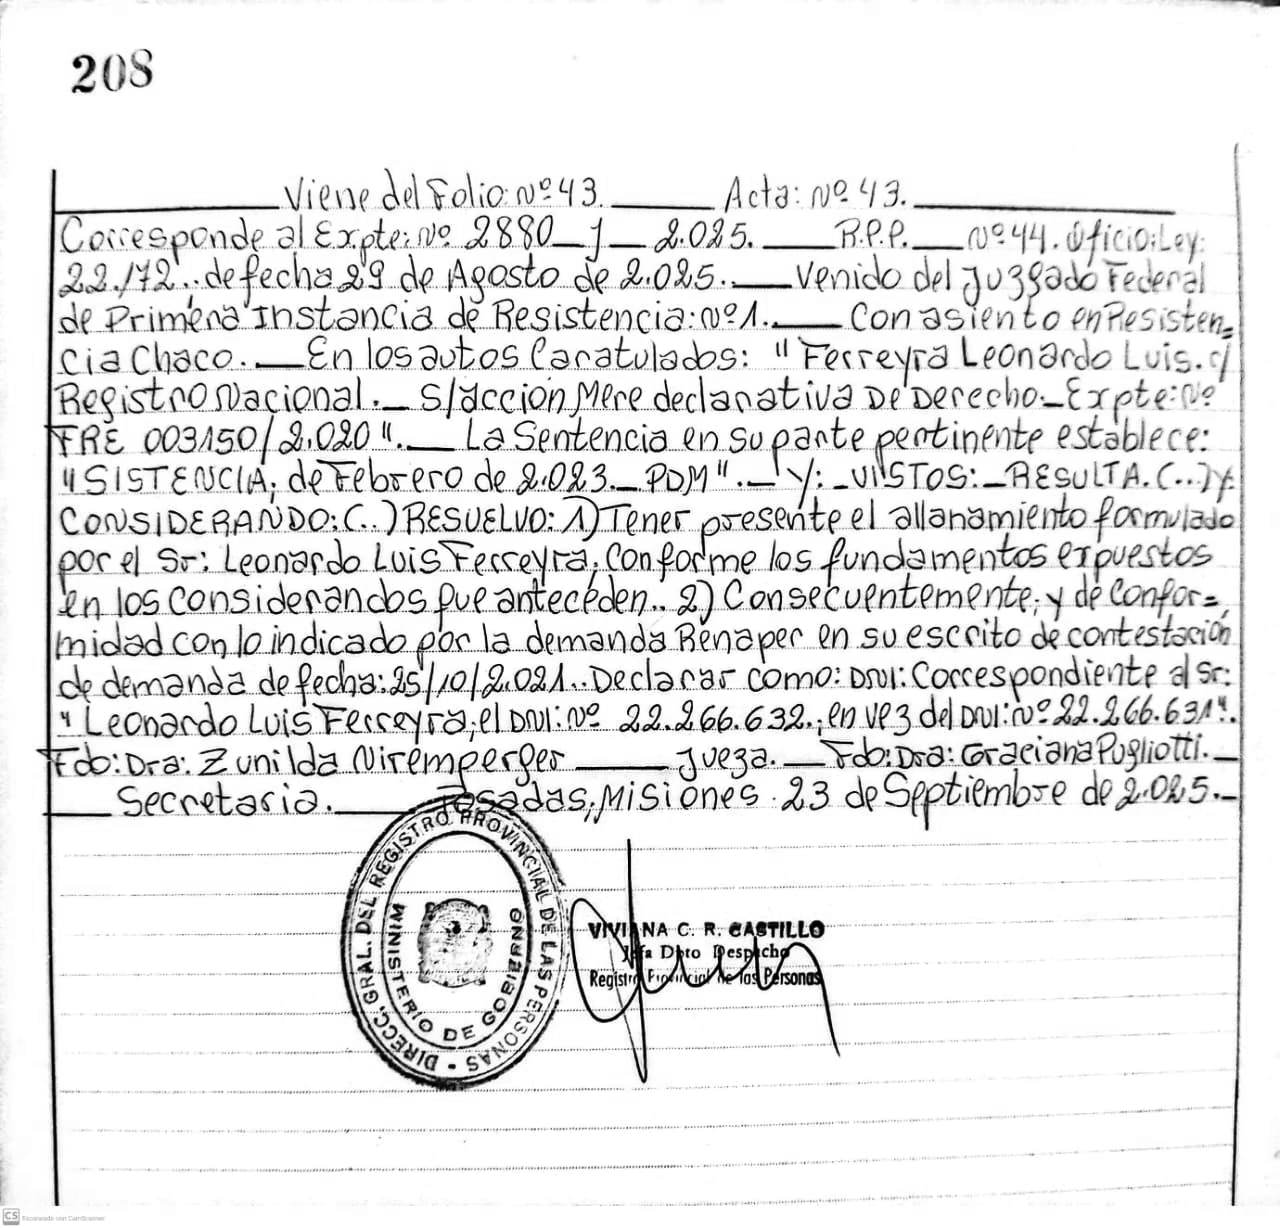 208
Viene del Folio: Nº 43. Acta: Nº 43.
Corresponde al Expte: Nº 2880 J 2.025. R.P.P. Nº 44. Oficio: Ley:
22./72.. de fecha 29 de Agosto de 2.025. Venido del Juzgado Federal
de Primera Instancia de Resistencia: Nº 1. Con asiento en Resisten=
cia Chaco. En los autos Caratulados: "Ferreyra Leonardo Luis. c/
Registro Nacional. S/acción Mere declarativa De Derecho. Expte: Nº
FRE 003150/2.020". La Sentencia en su parte pertinente establece:
"SISTENCIA, de Febrero de 2.023. PDM". Y: VISTOS: RESULTA. (..) y
CONSIDERANDO: (..) RESUELVO: 1) Tener presente el allanamiento formulado
por el Sr: Leonardo Luis Ferreyra, Conforme los fundamentos expuestos
en los Considerandos que anteceden.. 2) Consecuentemente, y de Confor=
midad con lo indicado por la demanda Renaper en su escrito de contestación
de demanda de fecha: 25/10/2.021.. Declarar como: DNI: Correspondiente al Sr:
"Leonardo Luis Ferreyra, el DNI: Nº 22.266.632., en vez del DNI: Nº 22.266.631".
Fdo: Dra: Zunilda Niremperger Jueza. Fdo: Dra: Graciana Pugliotti.
Secretaria. Posadas, Misiones 23 de Septiembre de 2.025.
DIRECC. GRAL. DEL REGISTRO PROVINCIAL DE LAS PERSONAS
MINISTERIO DE GOBIERNO
VIVIANA C. R. CASTILLO
Jefa Dpto Despacho
Registro Provincial de las Personas
CS Escaneado con CamScanner